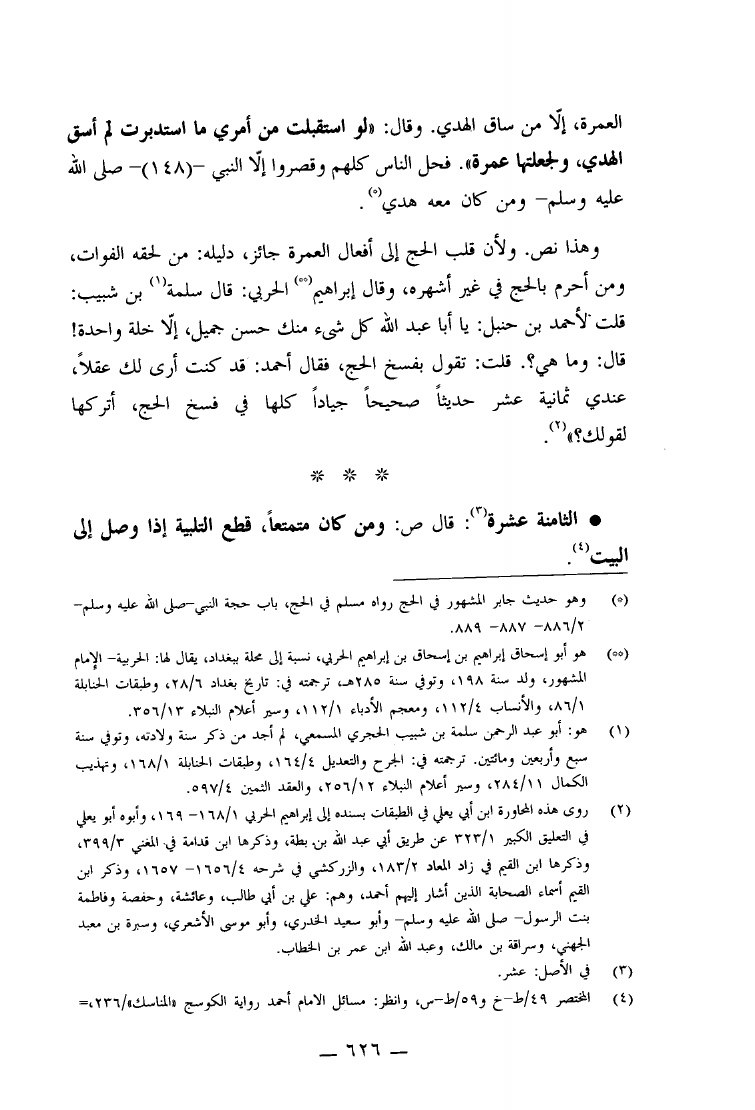 العمرة، إلّا من ساق الهدي. وقال: «لو استقبلت من أمري ما استدبرت لم أسق
الهدي، ولجعلتها عمرة». فحل الناس كلهم وقصروا إلّا النبي –(١٤٨)– صلى الله
عليه وسلم– ومن كان معه هدي(*).
وهذا نص. ولأن قلب الحج إلى أفعال العمرة جائز، دليله: من لحقه الفوات،
ومن أحرم بالحج في غير أشهره، وقال إبراهيم(**) الحربي: قال سلمة(١) بن شبيب:
قلت لأحمد بن حنبل: يا أبا عبد الله كل شيء منك حسن جميل، إلّا خلة واحدة!
قال: وما هي؟. قلت: تقول بفسخ الحج، فقال أحمد: قد كنت أرى لك عقلاً،
عندي ثمانية عشر حديثاً صحيحاً جياداً كلها في فسخ الحج، أتركها
لقولك؟»(٢).
* * *
● الثامنة عشرة(٣): قال ص: ومن كان متمتعاً، قطع التلبية إذا وصل إلى
البيت(٤).
(*) وهو حديث جابر المشهور في الحج رواه مسلم في الحج، باب حجة النبي–صلى الله عليه وسلم–
٨٨٦/٢– ٨٨٧– ٨٨٩.
(**) هو أبو إسحاق إبراهيم بن إسحاق بن إبراهيم الحربي، نسبة إلى محلة ببغداد، يقال لها: الحربية– الإمام
المشهور، ولد سنة ١٩٨، وتوفي سنة ٢٨٥هـ، ترجمته في: تاريخ بغداد ٢٨/٦، وطبقات الحنابلة
٨٦/١، والأنساب ١١٢/٤، ومعجم الأدباء ١١٢/١، وسير أعلام النبلاء ٣٥٦/١٣.
(١) هو: أبو عبد الرحمن سلمة بن شبيب الحجري المسمعي، لم أجد من ذكر سنة ولادته، وتوفي سنة
سبع وأربعين ومائتين. ترجمته في: الجرح والتعديل ١٦٤/٤، وطبقات الحنابلة ١٦٨/١، وتهذيب
الكمال ٢٨٤/١١، وسير أعلام النبلاء ٢٥٦/١٢، والعقد الثمين ٥٩٧/٤.
(٢) روى هذه المحاورة ابن أبي يعلي في الطبقات بسنده إلى إبراهيم الحربي ١٦٨/١– ١٦٩، وأبوه أبو يعلي
في التعليق الكبير ٣٢٣/١ عن طريق أبي عبد الله بن بطة، وذكرها ابن قدامة في المغني ٣٩٩/٣،
وذكرها ابن القيم في زاد المعاد ١٨٣/٢، والزركشي في شرحه ١٦٥٦/٤– ١٦٥٧، وذكر ابن
القيم أسماء الصحابة الذين أشار إليهم أحمد، وهم: علي بن أبي طالب، وعائشة، وحفصة وفاطمة
بنت الرسول– صلى الله عليه وسلم– وأبو سعيد الخدري، وأبو موسى الأشعري، وسبرة بن معبد
الجهني، وسراقة بن مالك، وعبد الله ابن عمر بن الخطاب.
(٣) في الأصل: عشر.
(٤) المختصر ٤٩/ط–خ و٥٩/ط–س، وانظر: مسائل الامام أحمد رواية الكوسج «المناسك»/٢٣٦،=
— ٦٢٦ —